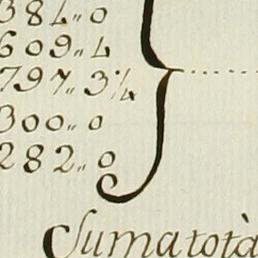 384,, 0
609,, 4
797,, 3 1/4
300,, 0
282,, 0
Suma totà